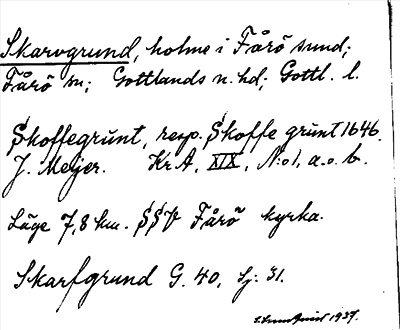 Skarvgrund, holme i Fårö sund;
Fårö sn; Gottlands n. hd; Gottl. l.
Skoffegrŭnt, resp. Skoffe grŭnt 1646.
J. Meijer. Kr.A, XIX, N:o 1, a. o. b.
Läge 7,8 km. SSV Fårö kyrka.
Skarfgrund G. 40, Sj: 31.
1937.